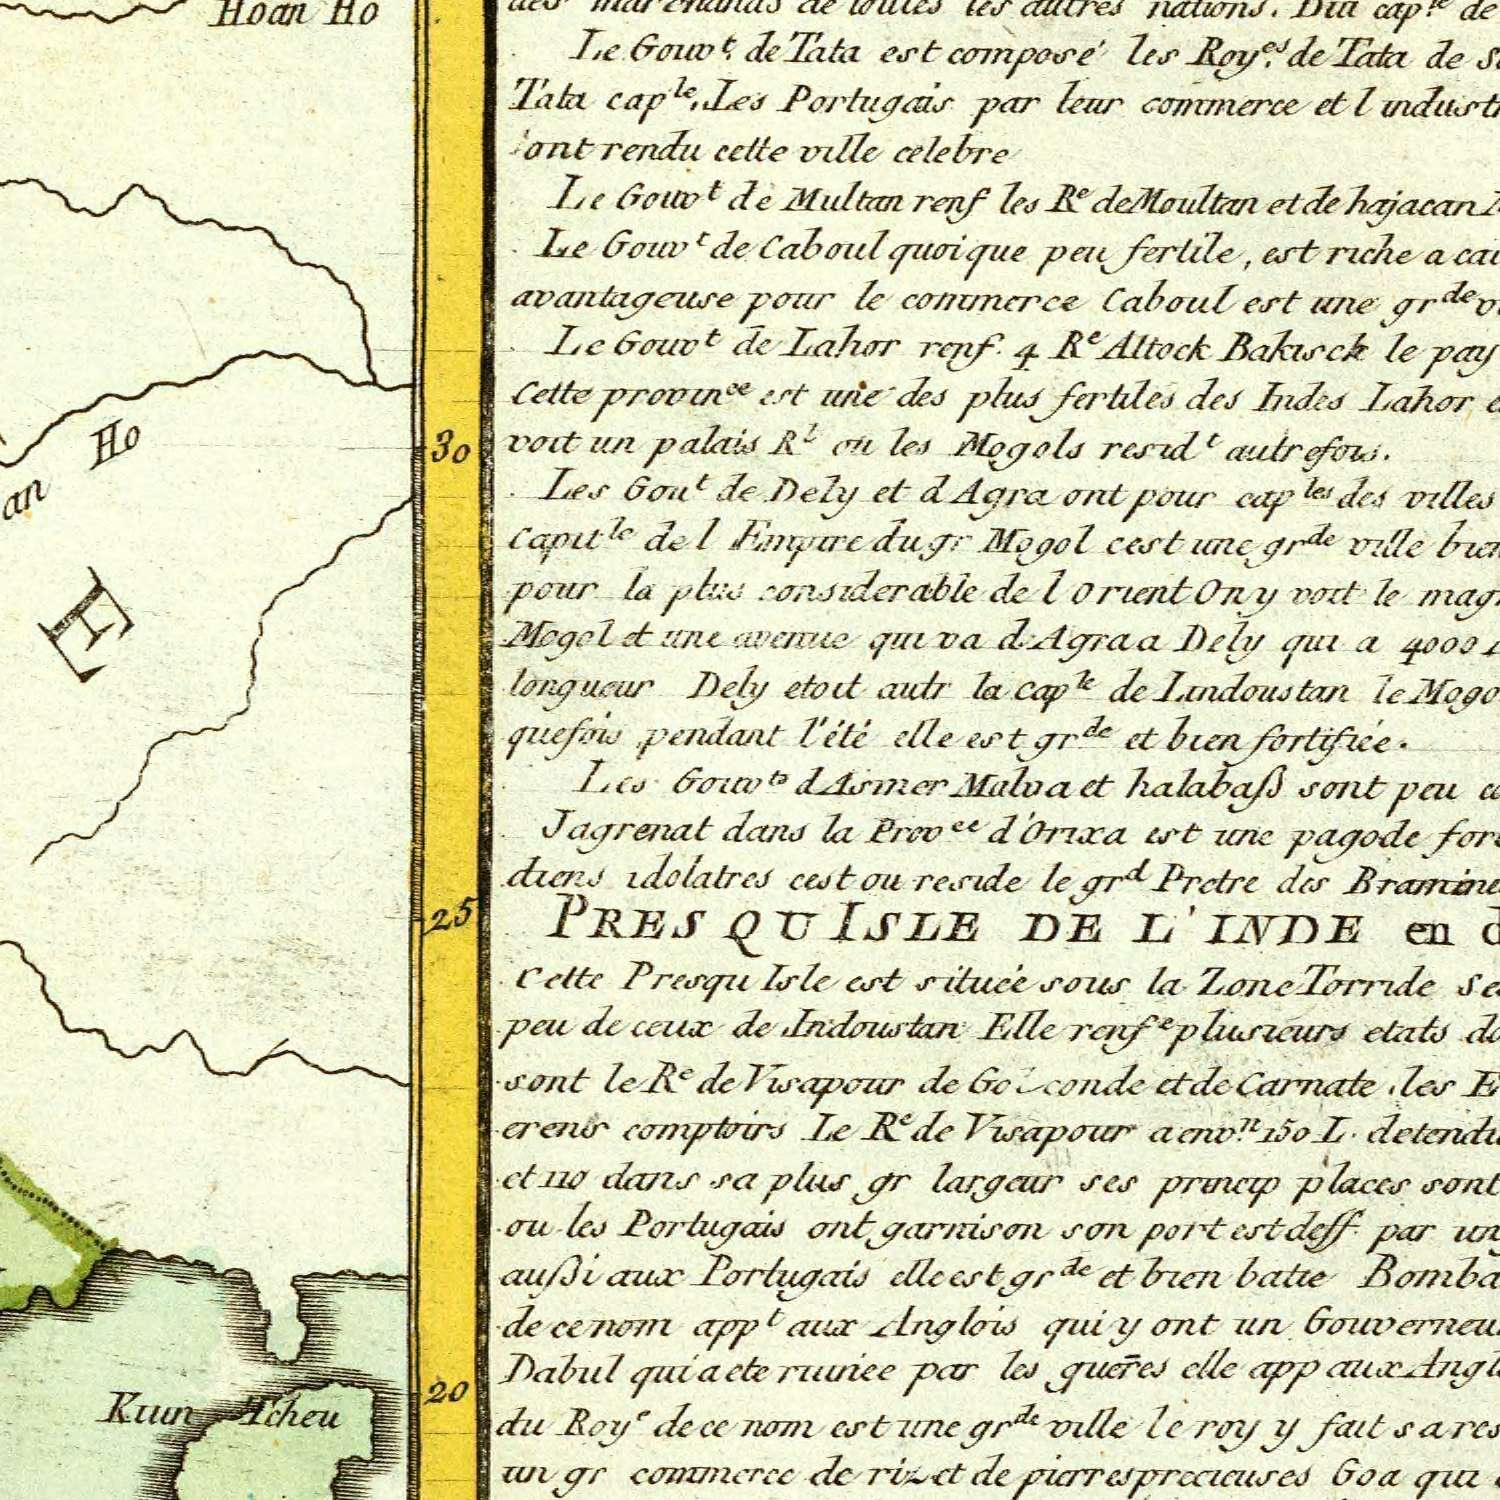 Hoan Ho
des marchands de toutes les autres nations. Diu cap.le de
Le Gouv.t de Tata est composé les Roy.es de Tata de
Tata cap.le Les Portugais par leur commerce et l
ont rendu cette ville celebre
Le Gouv.t de Multan renf les Re de Moultan et de hajacan
Le Gouv.t de Caboul quoique peu fertile, est riche a
avantageuse pour le commerce Caboul est une gr.de
Le Gouv.t de Lahor renf. 4 Re Attock Bakisch le pay
Cette provin.ce est une des plus fertiles des Indes Lahor
voit un palais R.l ou les Mogols resid.t autrefois.
Les Gou.t de Dely et d Agra ont pour cap.les des villes
Capit.le de l Empire du gr Mogol cest une gr.de ville bien
pour la plus considerable de l Orient On y voit le
Mogol et une avenue qui va d Agra a Dely qui a 4000
longueur Dely etoit autr la cap.le de Lindoustan le
quefois pendant l'été elle est gr.de et bien fortifiée.
Les Gouv.ts d Asmer Malva et halabaß sont peu
Jagrenat dans la Prov.ce d'Orixa est une pagode
diens idolatres cest ou reside le gr.d Pretre des
PRESQUISLE DE L'INDE en
Cette Presqu Isle est située sous la Zone Torride
peu de ceux de Indoustan Elle renf.e plusieurs etats
sont le Re de Visapour de Golconde et de Carnate les
erens comptoirs Le Re de Visapour a env.n 150 L. detendu
et 110 dans sa plus gr largeur ses princip places sont
ou les Portugais ont garnison son port est deff par un
außi aux Portugais elle est gr.de et bien batie
de ce nom app.t aux Anglois qui y ont un
Dabul qui a ete ruinée par les guerres elle app aux
du Roy.e de ce nom est une gr.de ville le roy y fait sa
un gr commerce de riz et de pierres precieuses Goa qui
30
Ho
an
H
25
20
Kiun Tcheu